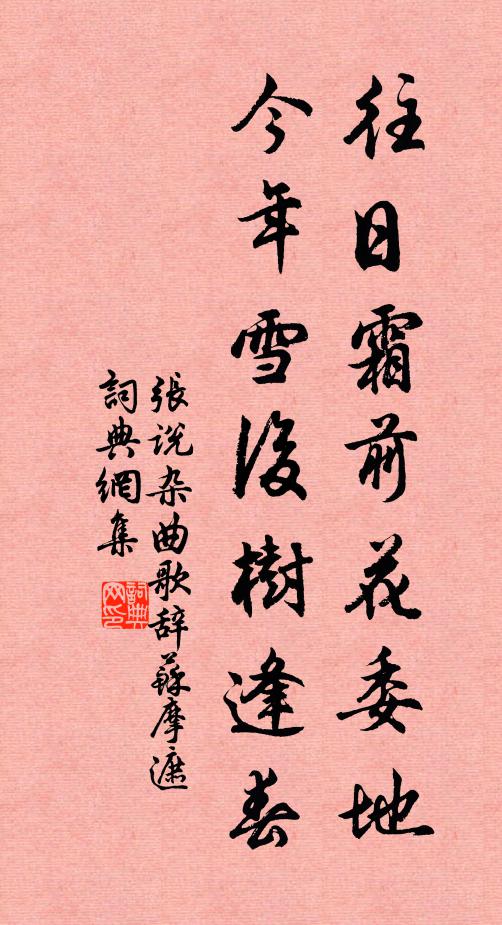 往日霜前花委地
今年雪後樹逢春
張說杂曲歌辞蘇摩遮
詞典網集
詞典网印